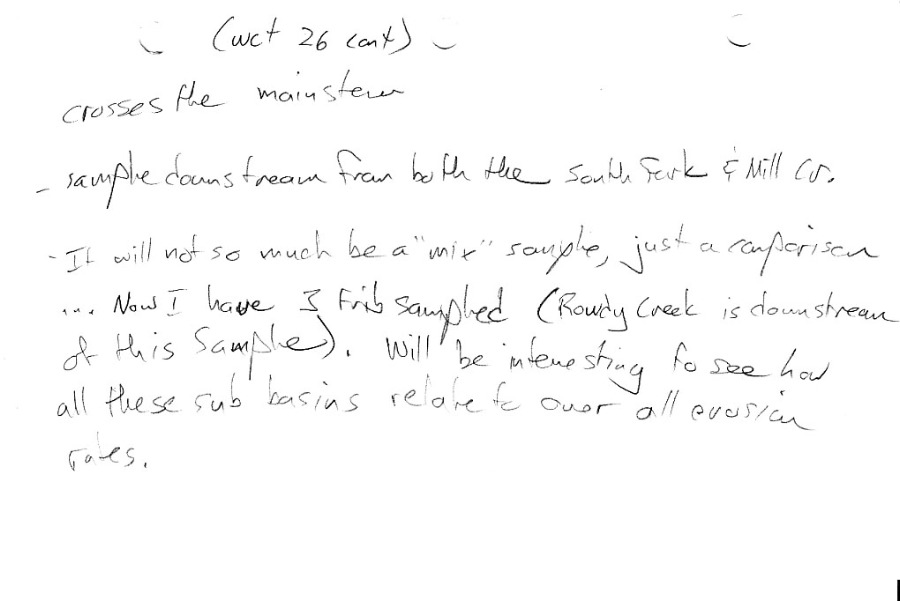 (wct 26 cont)
crosses the mainstem
- sample downstream from both the South Fork & Mill Cr.
- It will not so much be a "mix" sample, just a comparison
... Now I have 3 tribs sampled (Rowdy Creek is downstream
of this sample). Will be interesting to see how
all these sub basins relate to over all erosion
rates.